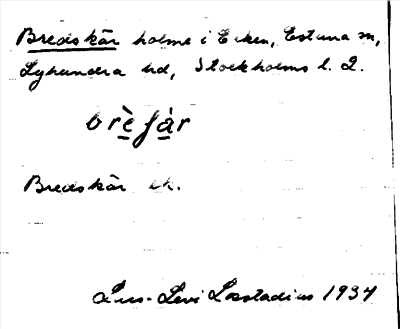 Bredskär holme i Erken, Estuna sn,
Lyhundra hd, Stockholms l. 2.
brèfàr
Bredskär ek.
Lars-Levi Læstadius 1934